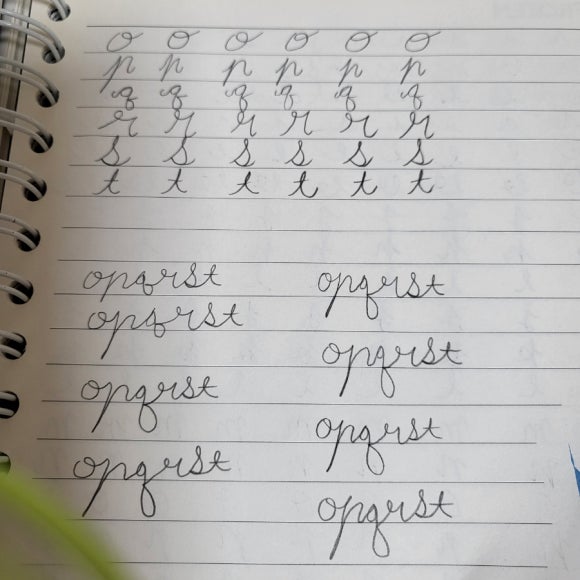 o o o o o o
p p p p p p
q q q q q q
r r r r r r
s s s s s s
t t t t t t
opqrst opqrst
opqrst
opqrst
opqrst
opqrst
opqrst
opqrst